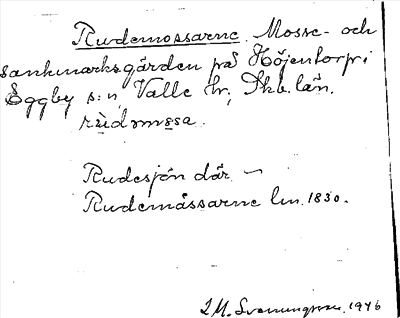 Rudemossarne. Mosse- och
sankmarksgärden på Höjentorp i
Eggby s:n, Valle hr, Skb. län.
rùdmɷsa.
Rudesjön där. –
Rudemåssarne lm. 1830.
I.M. Svenungsson. 1946